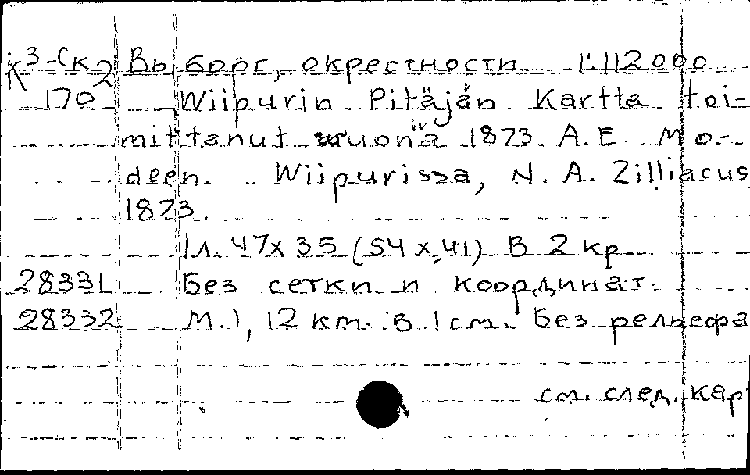 К 3-Ск 2 Выборг, окрестности 1:112000
170 Wiipurin Pitäjän Kartta toi-
mittanut wuonna 1873 A.E. Mo-
deen. Wiipurissa, N. A. Zilliacus
1873.
1 л. 47х35 (54х41) В 2 кр.
28331 Без сетки и координат.
28332 М. 1,12 км. в 1 см. Без рельефа
см. след. кар